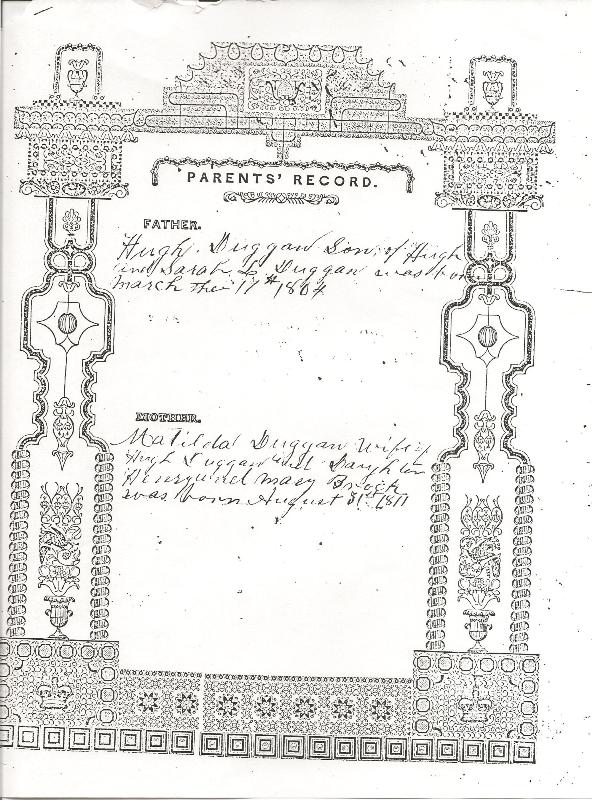 PARENTS' RECORD.
FATHER.
Hugh. Duggan Son, of Hugh
and Sarah Duggan was bor
March the 17th 1804
MOTHER.
Matilda Duggan Wife of
Hugh Duggan and Daughter
Henry and Mary Broch
was born August 31st 1811